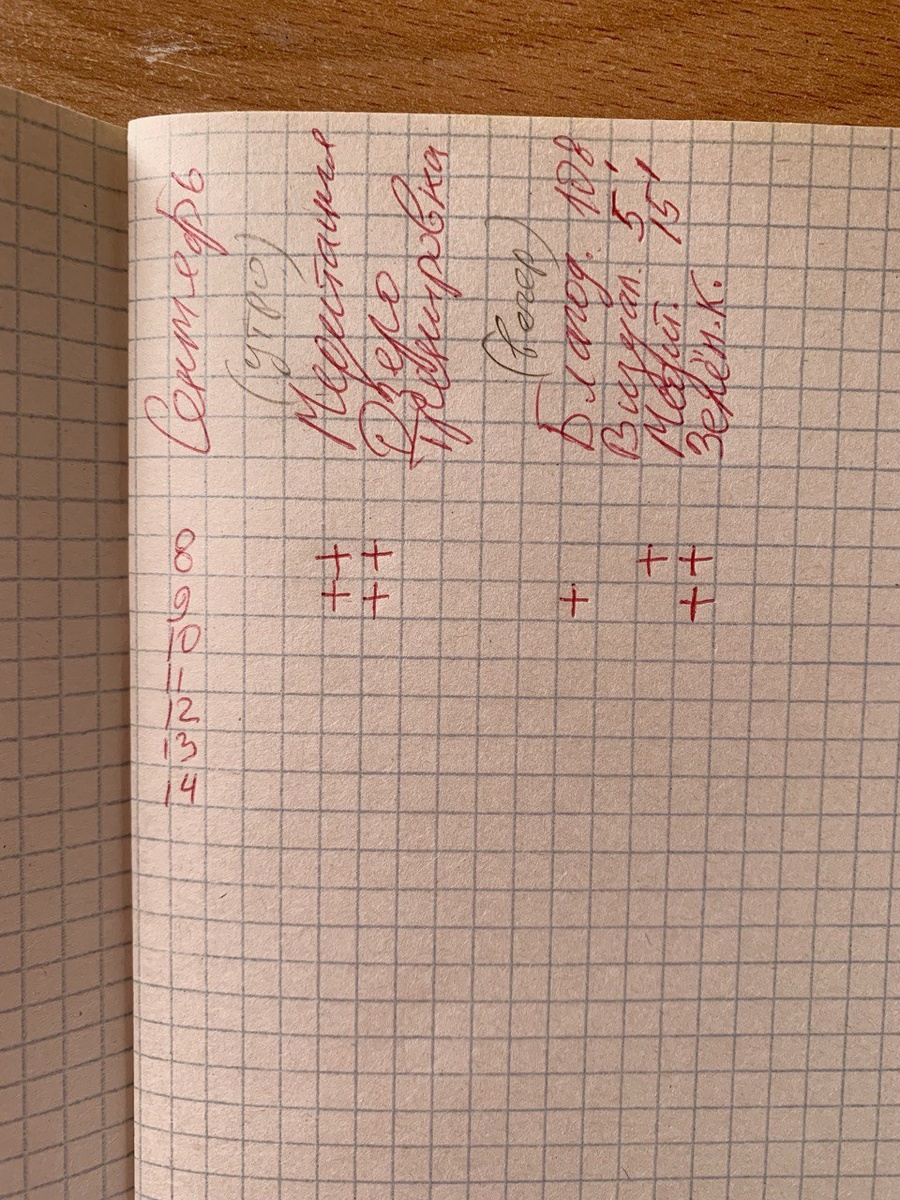 Сентябрь 8 9 10 11 12 13 14
(утро)
Медитация + +
Озеро + +
Тренировка
(вечер)
Благод. 108 +
Визуал. 5'
Медит. 15' +
Зелён.к. + +